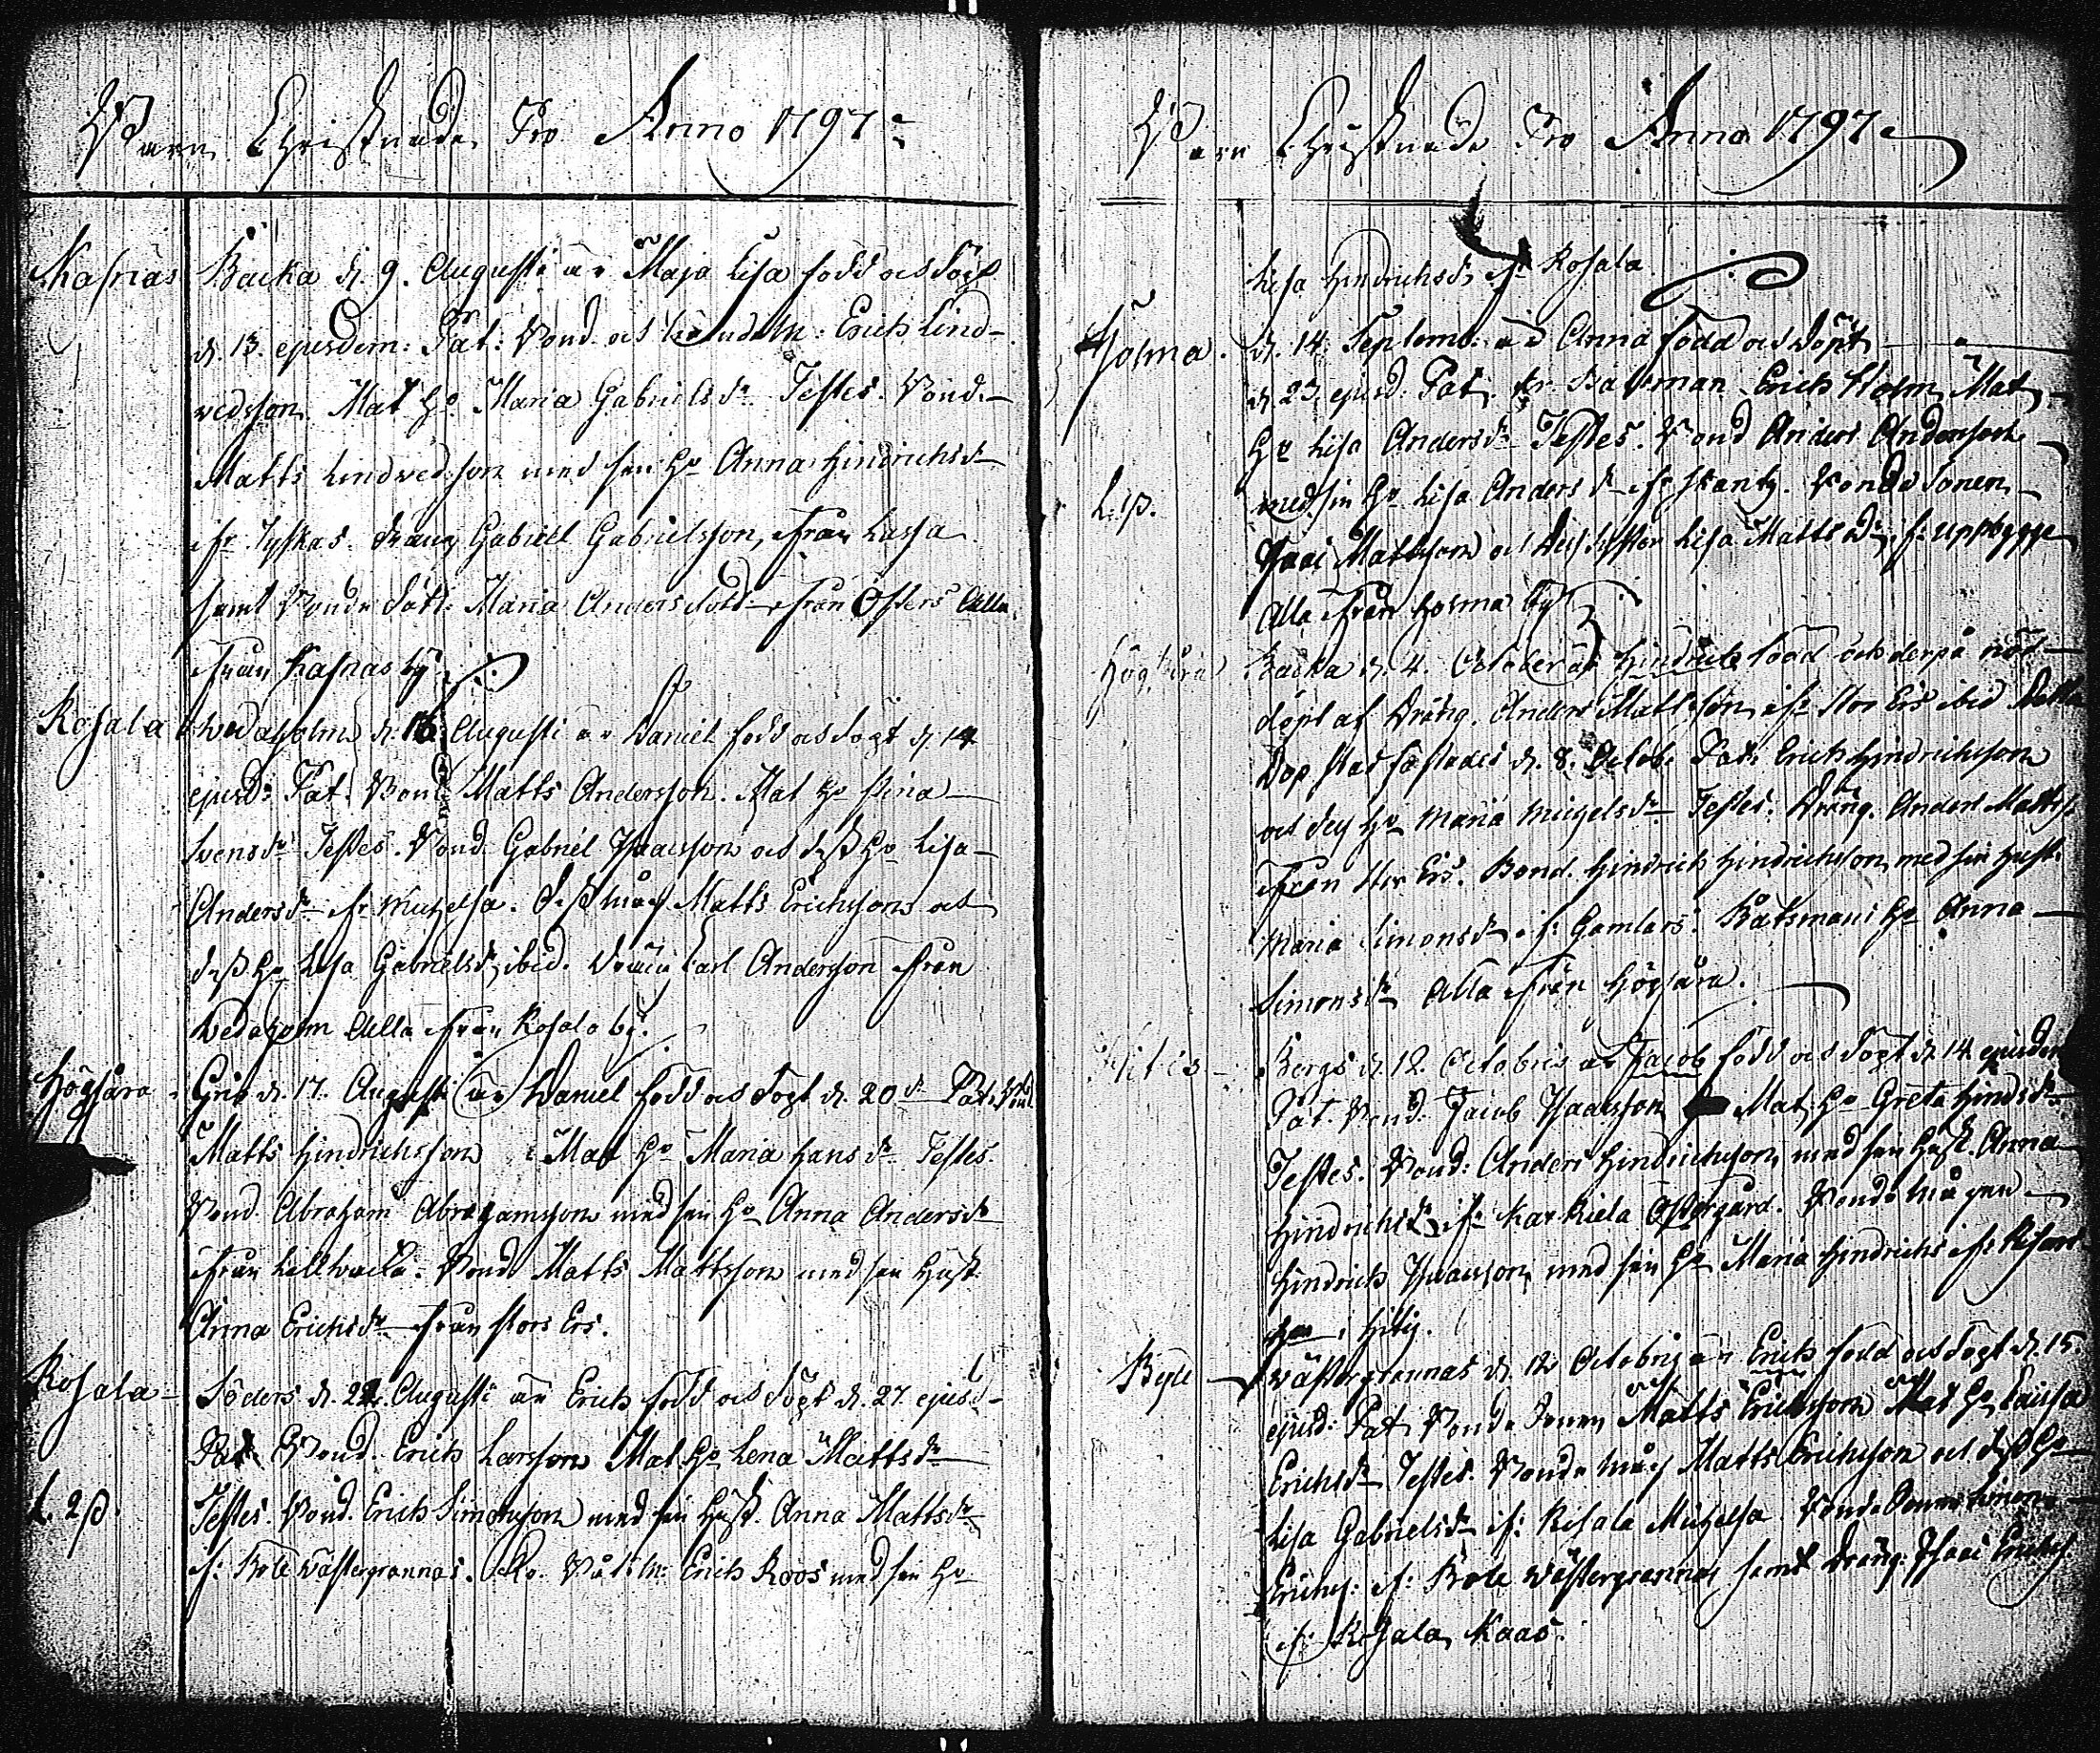 Barn Christnade Pro Anno 1797
Kasnäs Backa d. 9. Augusti är Maja Lisa född och döpt
d. 13. ejusdem: Pat: Bond. och Erich Lind-
vedsson. Mat H:o Maria Gabrielsd:r Testes. Bond.
Matts Lindvedsson med sin H:o Anna Hindrichsd:r
fr. Tyskas. Dräng Gabriell Gabrielsson, från Lassa
samt Bonde dott: Maria Andersdott från Östers Alla
från Kasnäs by
Rosala Wedaholm d. Augusti är Daniel född och döpt d. 14
ejusd: Pat. Bond Matts Andersson. Mat H:o Stina
Svensd:r Testes. Bond. Gabriel Isaacsson och dess H:o Lisa
Andersd:r fr. Michelsa. Matts Erichsson och
dess H:o Lisa Gabrielsd:r ibid. Dräng Carl Andersson från
Wedaholm Alla från Rosala by.
Högsåra Gris d. 17. Augusti är Daniel född och döpt d. 20 d:o Pat. Bond
Matts Hindrichsson Mat H:o Maria Hansd:r Testes.
Bond. Abraham Abrahamsson med sin H:o Anna Andersd:r
från Bond Matts Mattsson med sin Hust.
Anna Erichsd:r från Stors Ers.
Rosala Söders d. 22. Augusti är Erich född och döpt d. 27. ejusd
Pat Bond. Erich Larsson Mat H:o Lena Mattsd:r
L. 2 ß. Testes. Bond. Erich Simonsson med sin Hust. Anna Mattsd:r
f: Böle Västergrannas. Erich Roos med sin H:o
Barn Christnade Pro Anno 1797
Lisa Hindrichsd:r fr Rosala
Holma. d. 14 Septemb: är Anna född och döpt
d. 23. ejusd. Pat. Båtsman Erich Holm, Mat
H:o Lisa Andersd:r Testes. Bond Anders Andersson
L. ß. med sin H:o Lisa Andersd:r Bonde Sonen
Isaac Mattsson och dess syster Lisa Mattsd:r, f:
Alla från Holma by
Högsåra Backa d. 4. October är Hindrich född och derpå nöd-
döpt af Dräng. Anders Mattsson, fr Stor Ers ibid
Dop stadfästades d. 8. Octob. Pat: Erich Hindrichsson
och dess H:o Maria Michelsd:r Testes: Dräng. Anders Mattss.
från Stor Ers. Bond. Hindrich Hindrichsson, med sin Hust.
Maria Simonsd:r f: Gamlars. Båtsmans H:o Anna
Simonsd:r Alla från Högsåra.
Hitis Bergs d. 12. Octobris är Jacob född och döpt d. 14 ejusdem
Pat. Bond. Jacob Isaacsson Mat. H:o Greta Hindsd:r
Testes. Bond: Anders Hindrichsson, med sin Hust. Anna
Hindrichsd:r fr Östergård. Bonde mågen
Hindrich Isaacsson, med sin H:o Maria Hindrichs f:
i Hitis.
Böle Västergrannas d. 12 Octobris är Erich född och döpt d. 15
ejusd: Pat. Bonde Sonen Matts Erichsson Mat H:o Caisa
Erichsd:r Testes. Bonde måg Matts Erichsson och dess H:o
Lisa Gabrielsd:r f: Rosala Michelsa. Bonde Sonen Simon
Erichs: f: Böle Västergrannas, samt Dräng. Isaac Erichs
f: Rosala, Kaas.